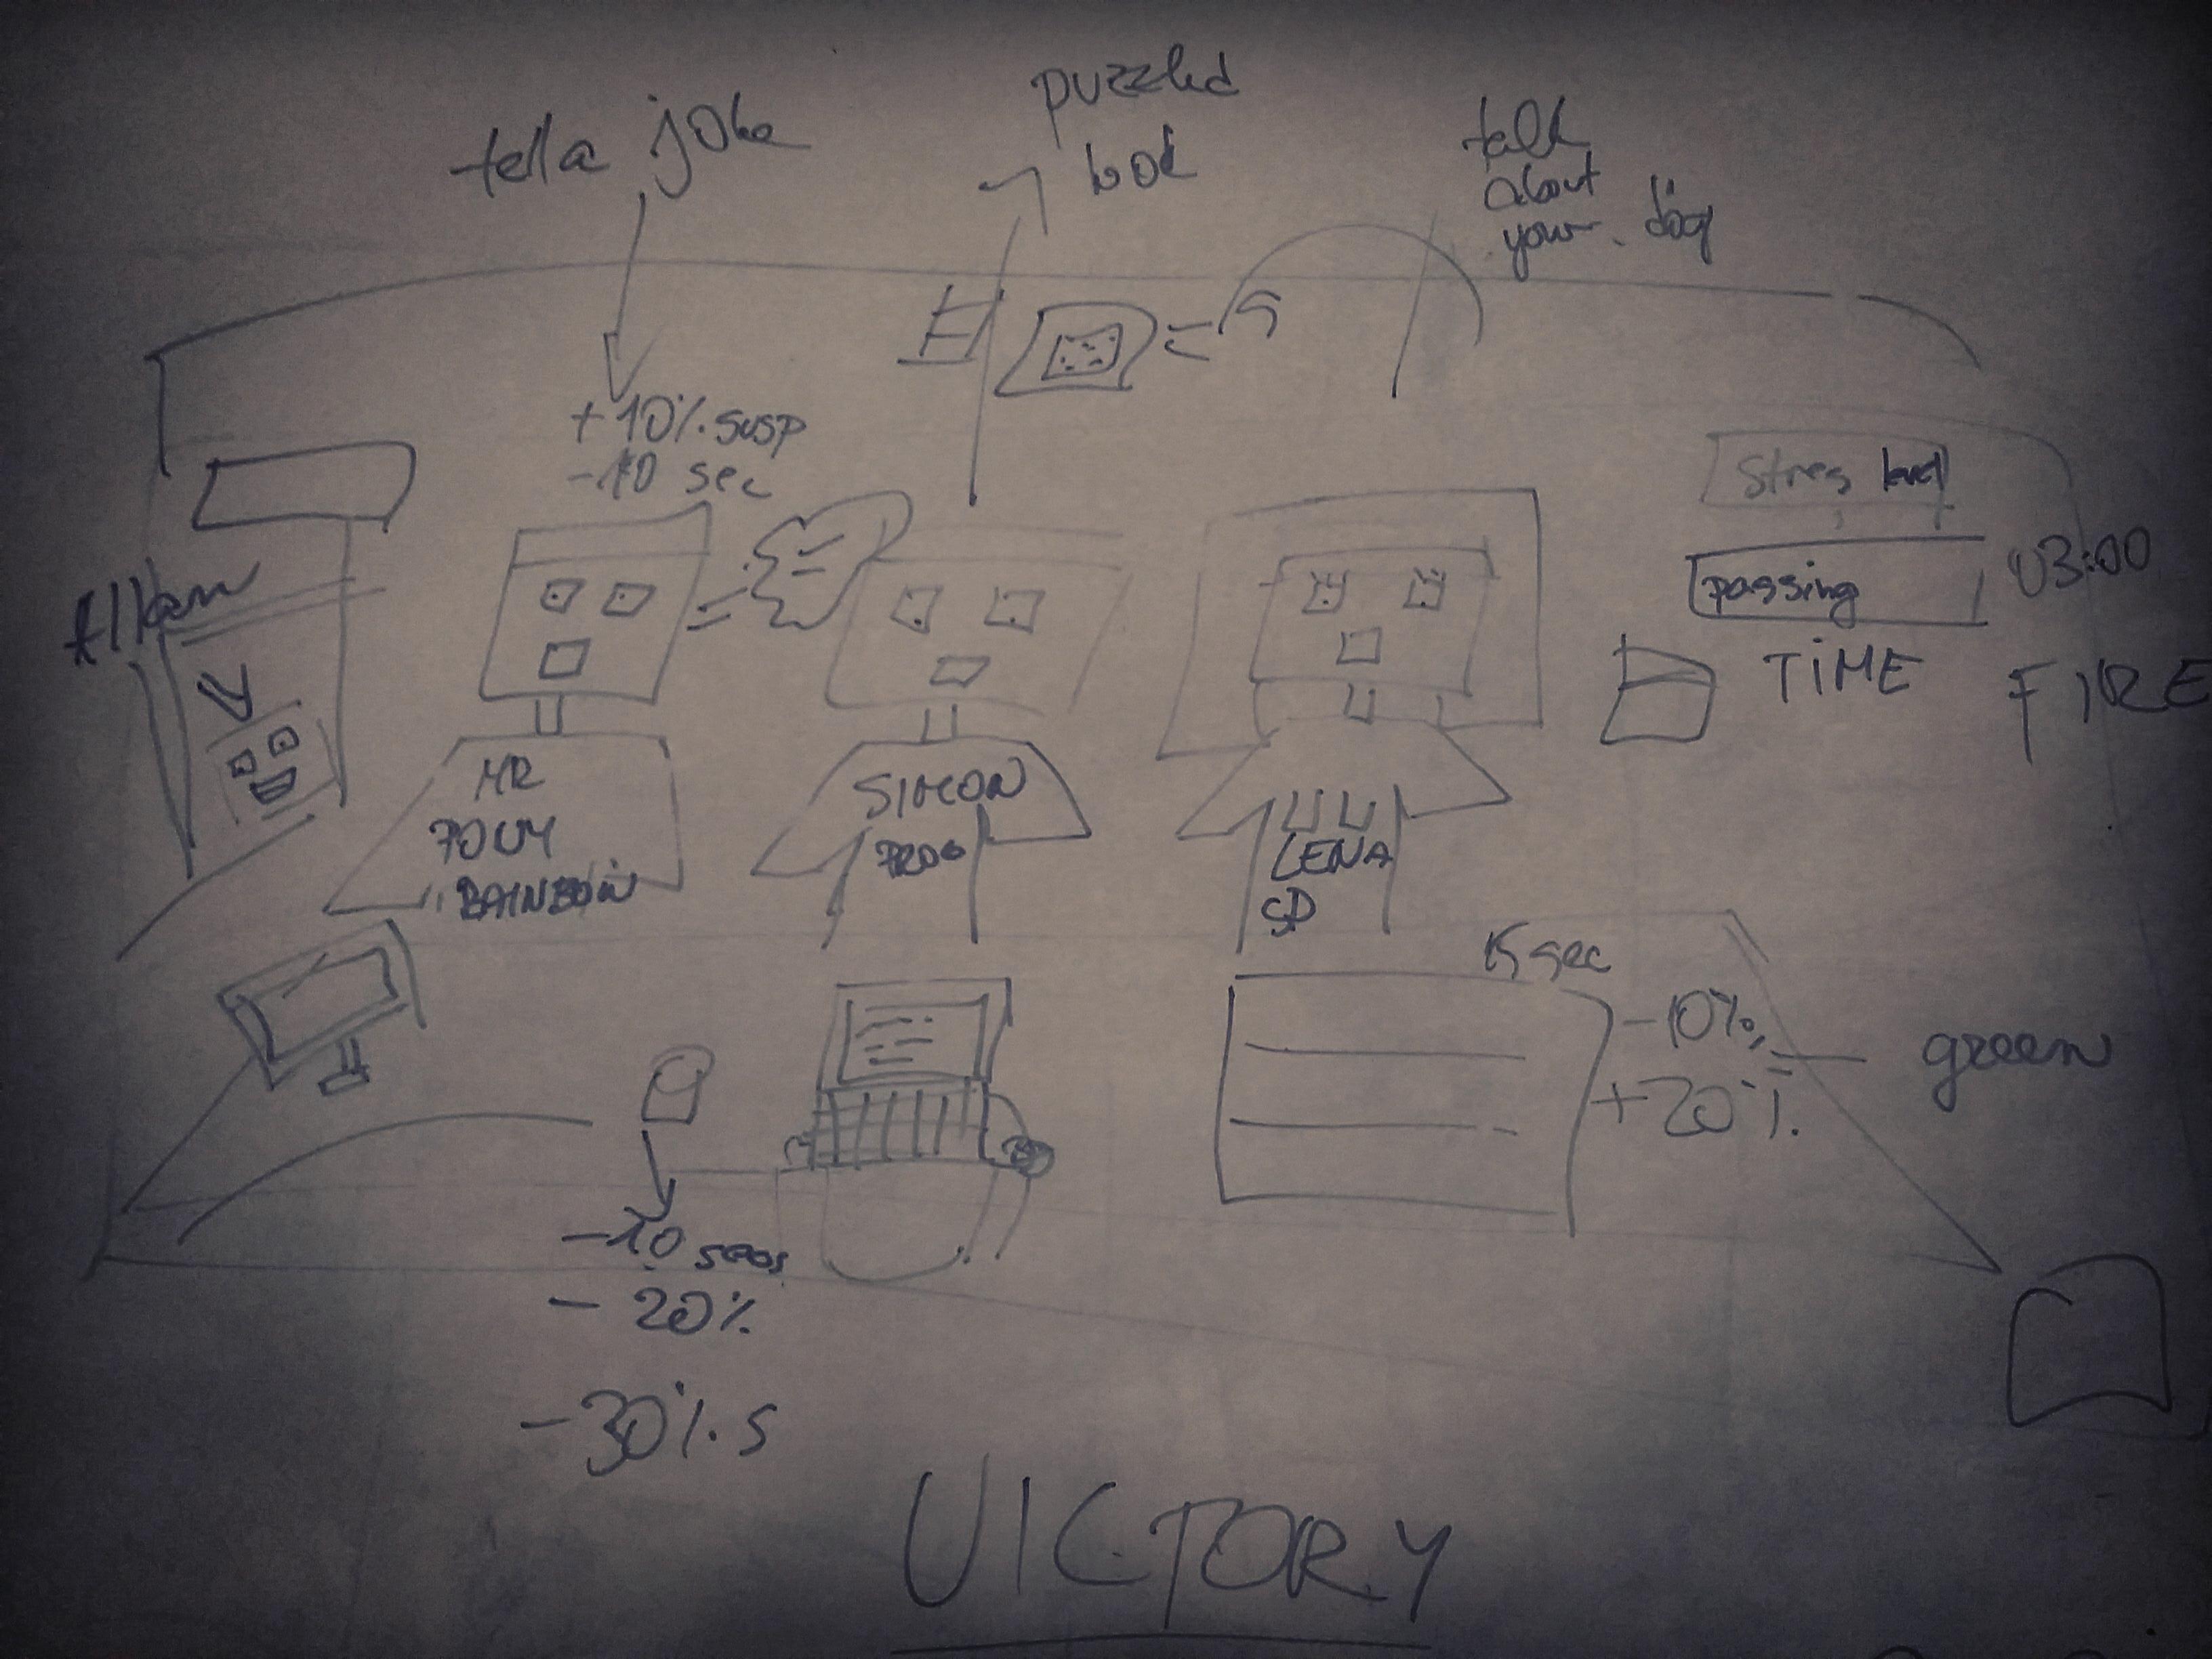 tell a joke
puzzled
look
talk
about
your dog
+10% susp
-10 sec
Stres level
passing
03:00
TIME
FIRE
MR
PONY
RAINBOW
SIMON
PROG
LENA
SD
15 sec
-10%
+20%
green
-10 secs
-20%
-30% S
VICTORY